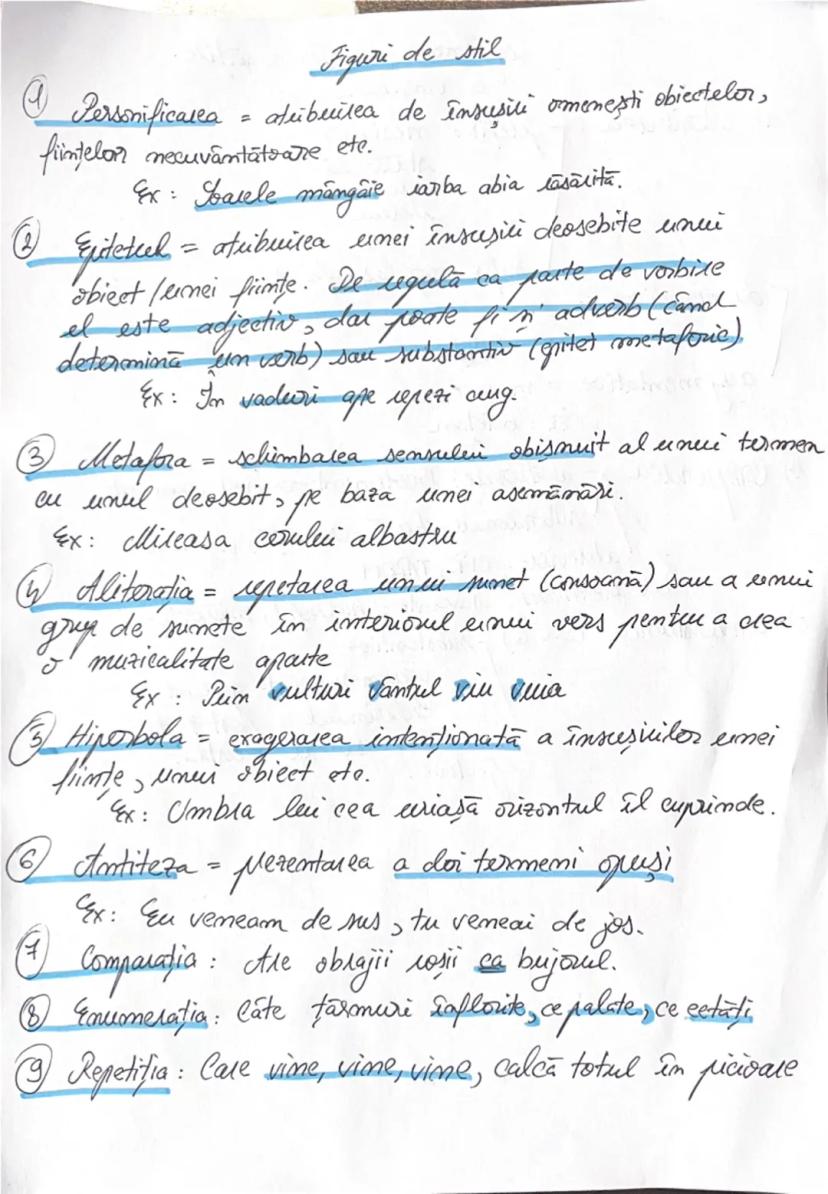 Figuri de stil
① Personificarea = atribuirea de însușiri omenești obiectelor,
ființelor necuvântătoare etc.
Ex: Soarele mângâie iarba abia răsărită.
② Epitetul = atribuirea unei însușiri deosebite unui
obiect/unei ființe. De regulă ca parte de vorbire
el este adjectiv, dar poate fi și adverb (când
determină un verb) sau substantiv (epitet metaforic)
Ex: În vaduri ape repezi curg.
③ Metafora = schimbarea sensului obișnuit al unui termen
cu unul deosebit, pe baza unei asemănări.
Ex: Mireasa cerului albastru
④ Aliterația = repetarea unui sunet (consoană) sau a unui
grup de sunete în interiorul unui vers pentru a crea
o muzicalitate aparte
Ex: Prin vulturi vântul viu vuia
⑤ Hiperbola = exagerarea intenționată a însușirilor unei
ființe, unui obiect etc.
Ex: Umbra lui cea uriașă orizontul îl cuprinde.
⑥ Antiteza = prezentarea a doi termeni opuși
Ex: Eu veneam de sus, tu veneai de jos.
⑦ Comparația: Are obrajii roșii ca bujorul.
⑧ Enumerația: Câte țărmuri înflorite, ce palate, ce cetăți
⑨ Repetiția: Care vine, vine, vine, calcă totul în picioare